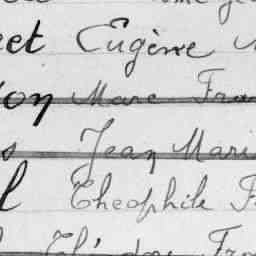 eet Eugène
on Marc Fra
s Jean Mari
l Theophile F
Fra